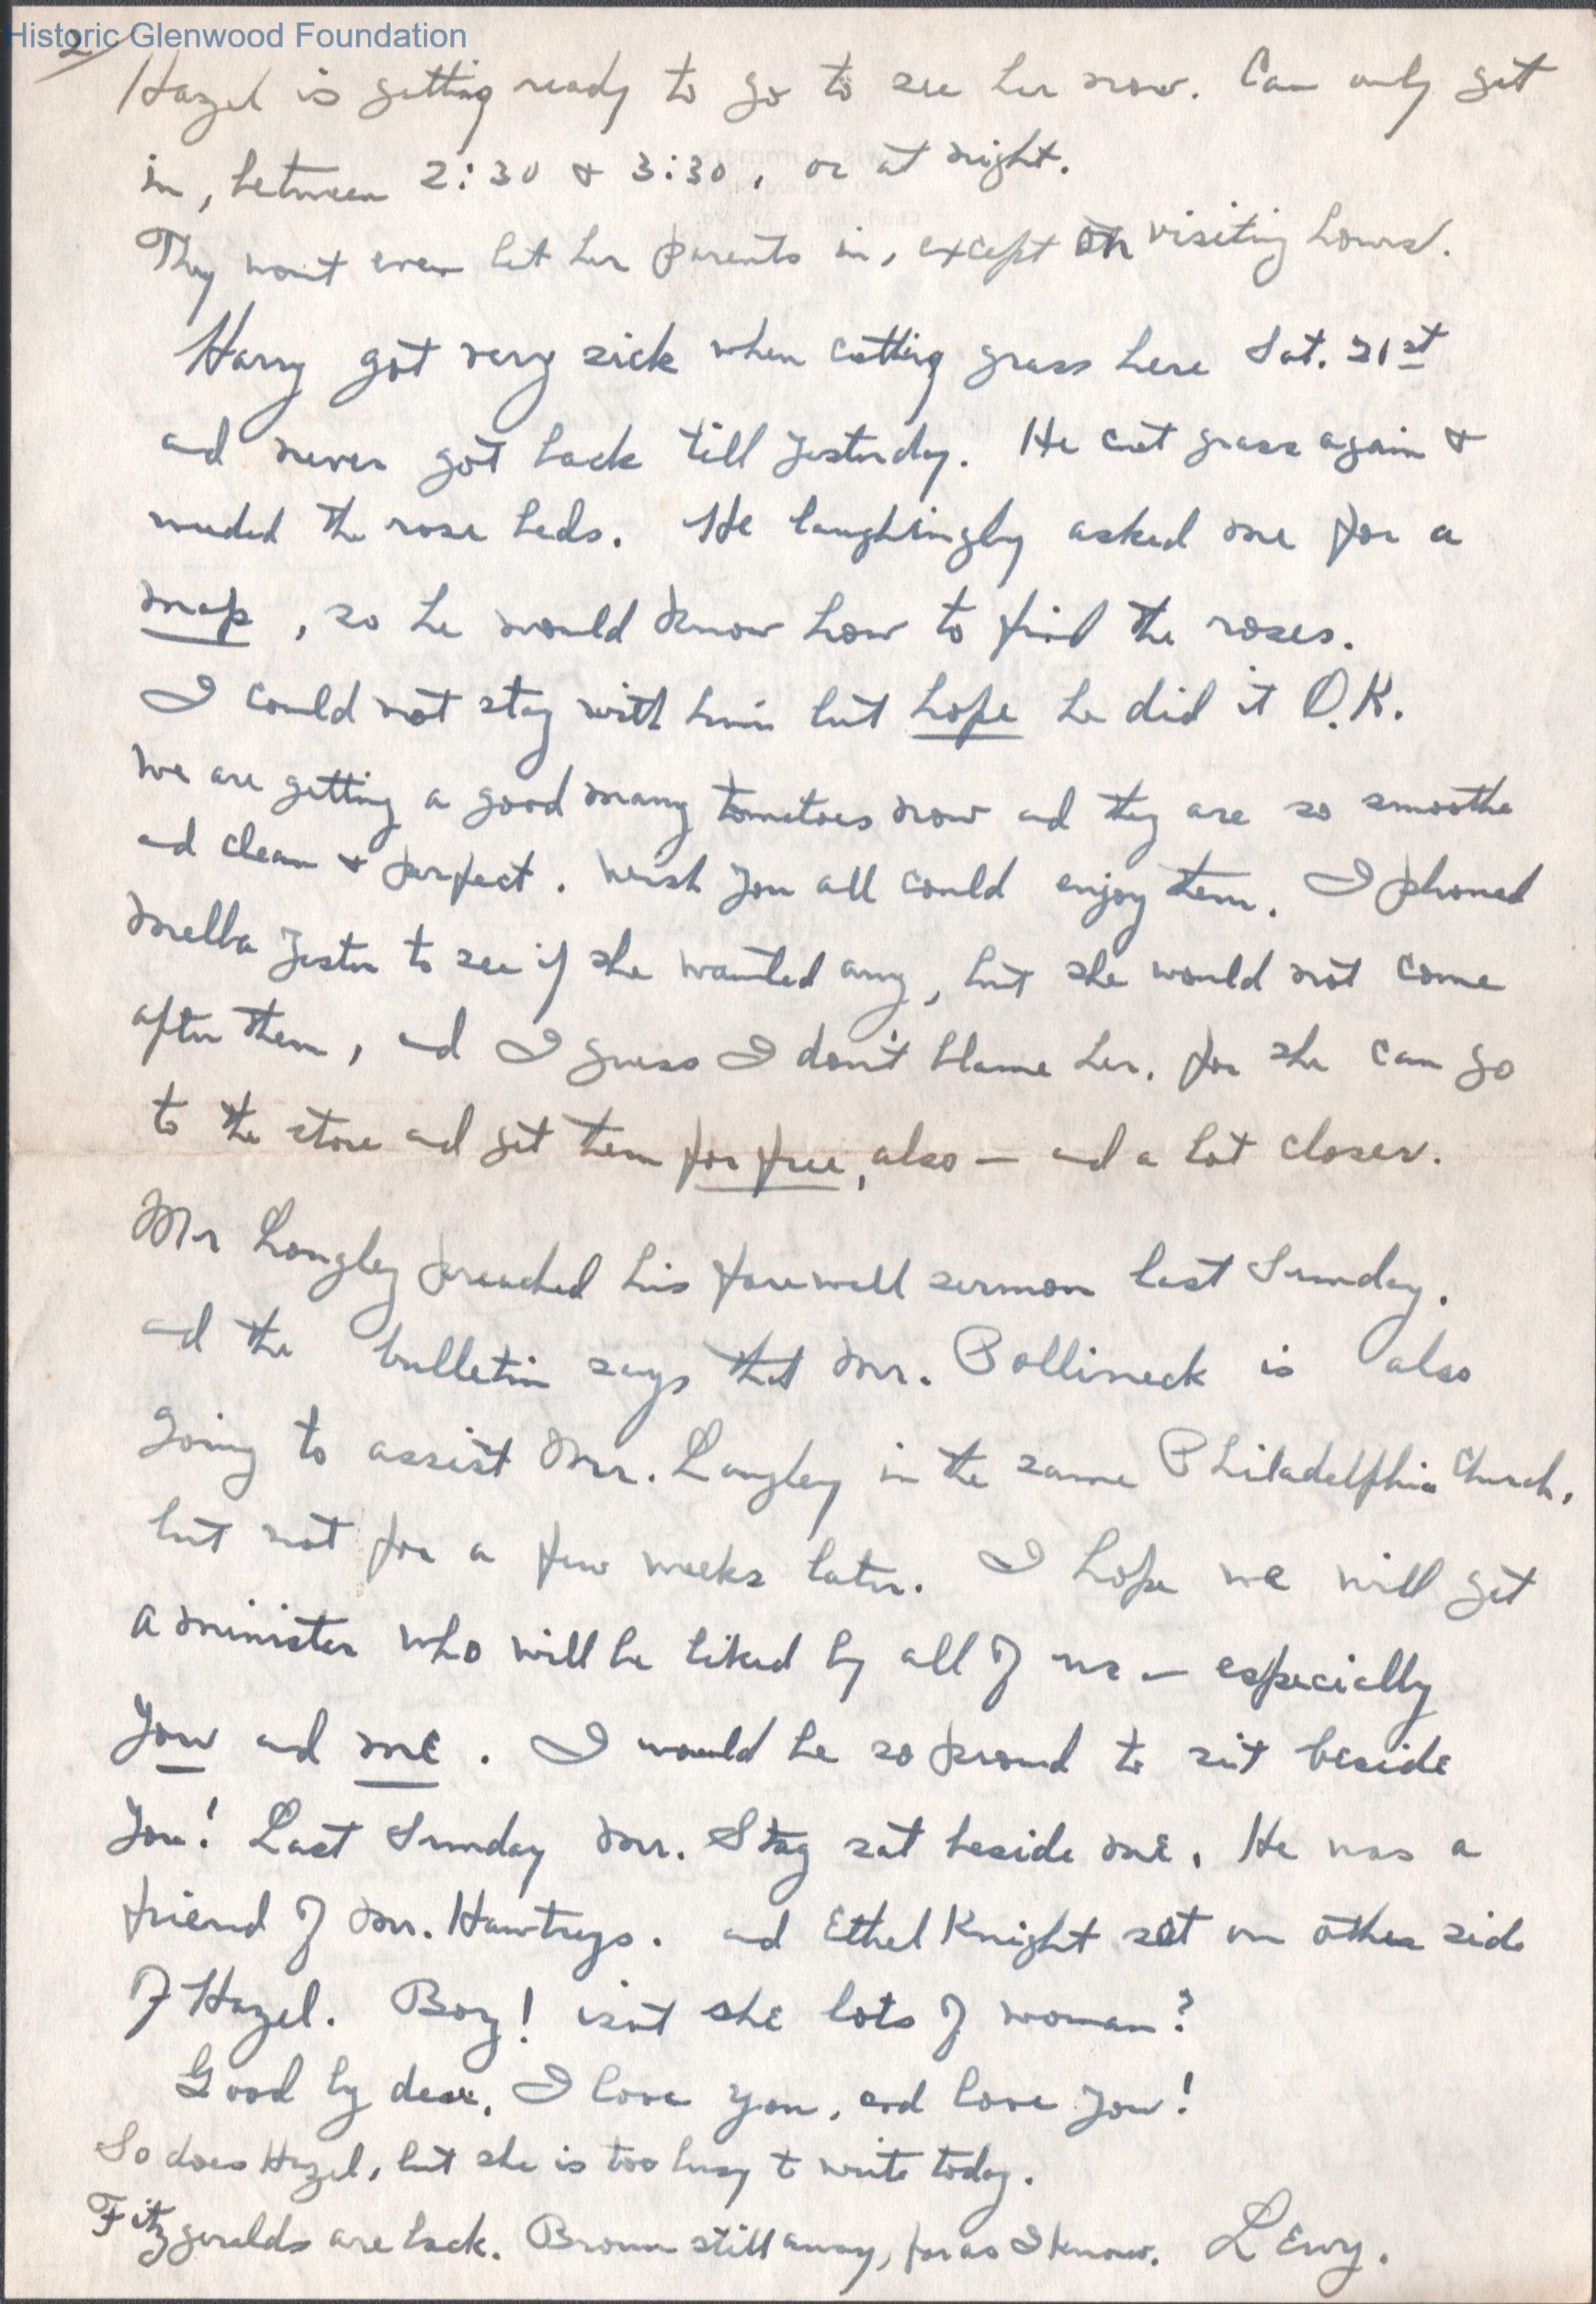 Historic Glenwood Foundation
2/
Hazel is getting ready to go to see her now. Can only get
in, between 2:30 & 3:30, or at night.
They wont even let her parents in, except on visiting hours.
Harry got very sick when cutting grass here Sat. 21st
and never got back till yesterday. He cut grass again &
weeded the rose beds. He laughingly asked me for a
map, so he would know how to find the roses.
I could not stay with him but hope he did it O.K.
We are getting a good many tomatoes now and they are so smoothe
and clean & perfect. Wish you all could enjoy them. I phoned
Melba Jester to see if she wanted any, but she would not come
after them, and I guess I don't blame her. for she can go
to the store and get them for free, also — and a lot closer.
Mr Longley preached his farewell sermon last Sunday.
and the bulletin says that Mr. Bollineck is also
going to assist Mr. Langley in the same Philadelphia Church,
but not for a few weeks later. I hope we will get
a minister who will be liked by all of us — especially
you and me. I would be so proud to sit beside
you! Last Sunday Mr. Stag sat beside me. He was a
friend of Mr. Hawtreys. and Ethel Knight sat on other side
of Hazel. Boy! isnt she lots of woman?
Good by dear, I love you, and love you!
So does Hazel, but she is too busy to write today.
Fitzgeralds are back. Brown still away, far as I know. LEwy.